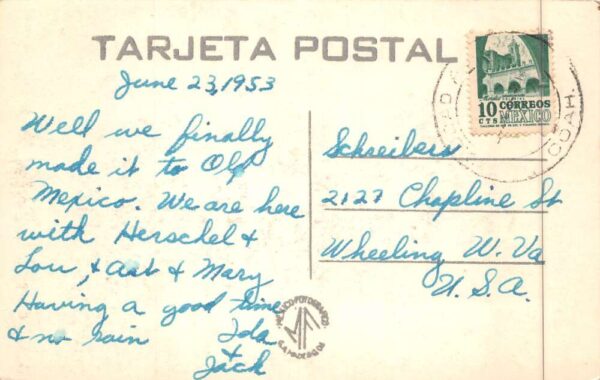 TARJETA POSTAL
June 23, 1953
Well we finally
made it to Old
Mexico. We are here
with Herschel &
Lou, & Art & Mary
Having a good time
& no rain
Ida
+
Jack
Schreibers
2127 Chapline St
Wheeling W. Va
U.S.A.
10 CORREOS
CTS MEXICO
COAH.
MF